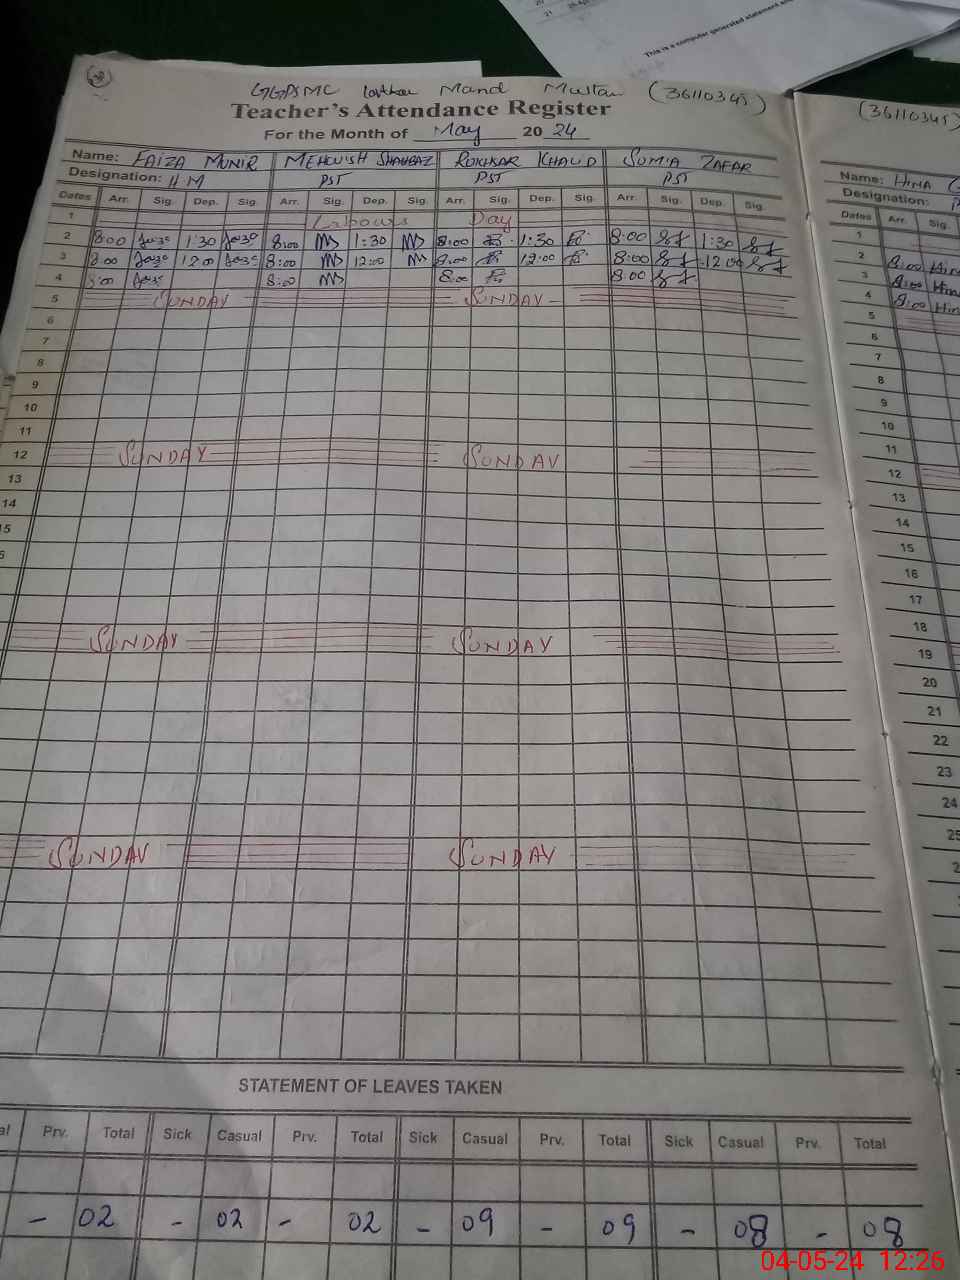 This is a computer generated statement
GGPSMC Mand Multan (36110345)
Teacher's Attendance Register
For the Month of May 2024
Name: FAIZA MUNIR MEHWISH SHAHBAZ RUKHSAR KHALID SUMIA ZAFAR
Designation: HM PST PST PST
Dates Arr. Sig. Dep. Sig. Arr. Sig. Dep. Sig. Arr. Sig. Dep. Sig. Arr. Sig. Dep. Sig.
1 Labour's Day
2 8:00 1:30 8:00 1:30 8:00 1:30 8:00 1:30
3 8:00 12:00 8:00 12:00 8:00 12:00 8:00 12:00
4 8:00 8:00 8:00 8:00
5 SUNDAY SUNDAY
6
7
8
9
10
11
12 SUNDAY SUNDAY
13
14
15
SUNDAY SUNDAY
SUNDAY SUNDAY
STATEMENT OF LEAVES TAKEN
Prv. Total Sick Casual Prv. Total Sick Casual Prv. Total Sick Casual Prv. Total
- 02 - 02 - 02 - 09 - 09 - 08 - 08
(36110345)
Name: HINA
Designation:
Dates Arr. Sig.
1
2 8:00 Hina
3 8:00 Hina
4 8:00 Hin
5
6
7
8
9
10
11
12
13
14
15
16
17
18
19
20
21
22
23
24
25
04-05-24 12:26